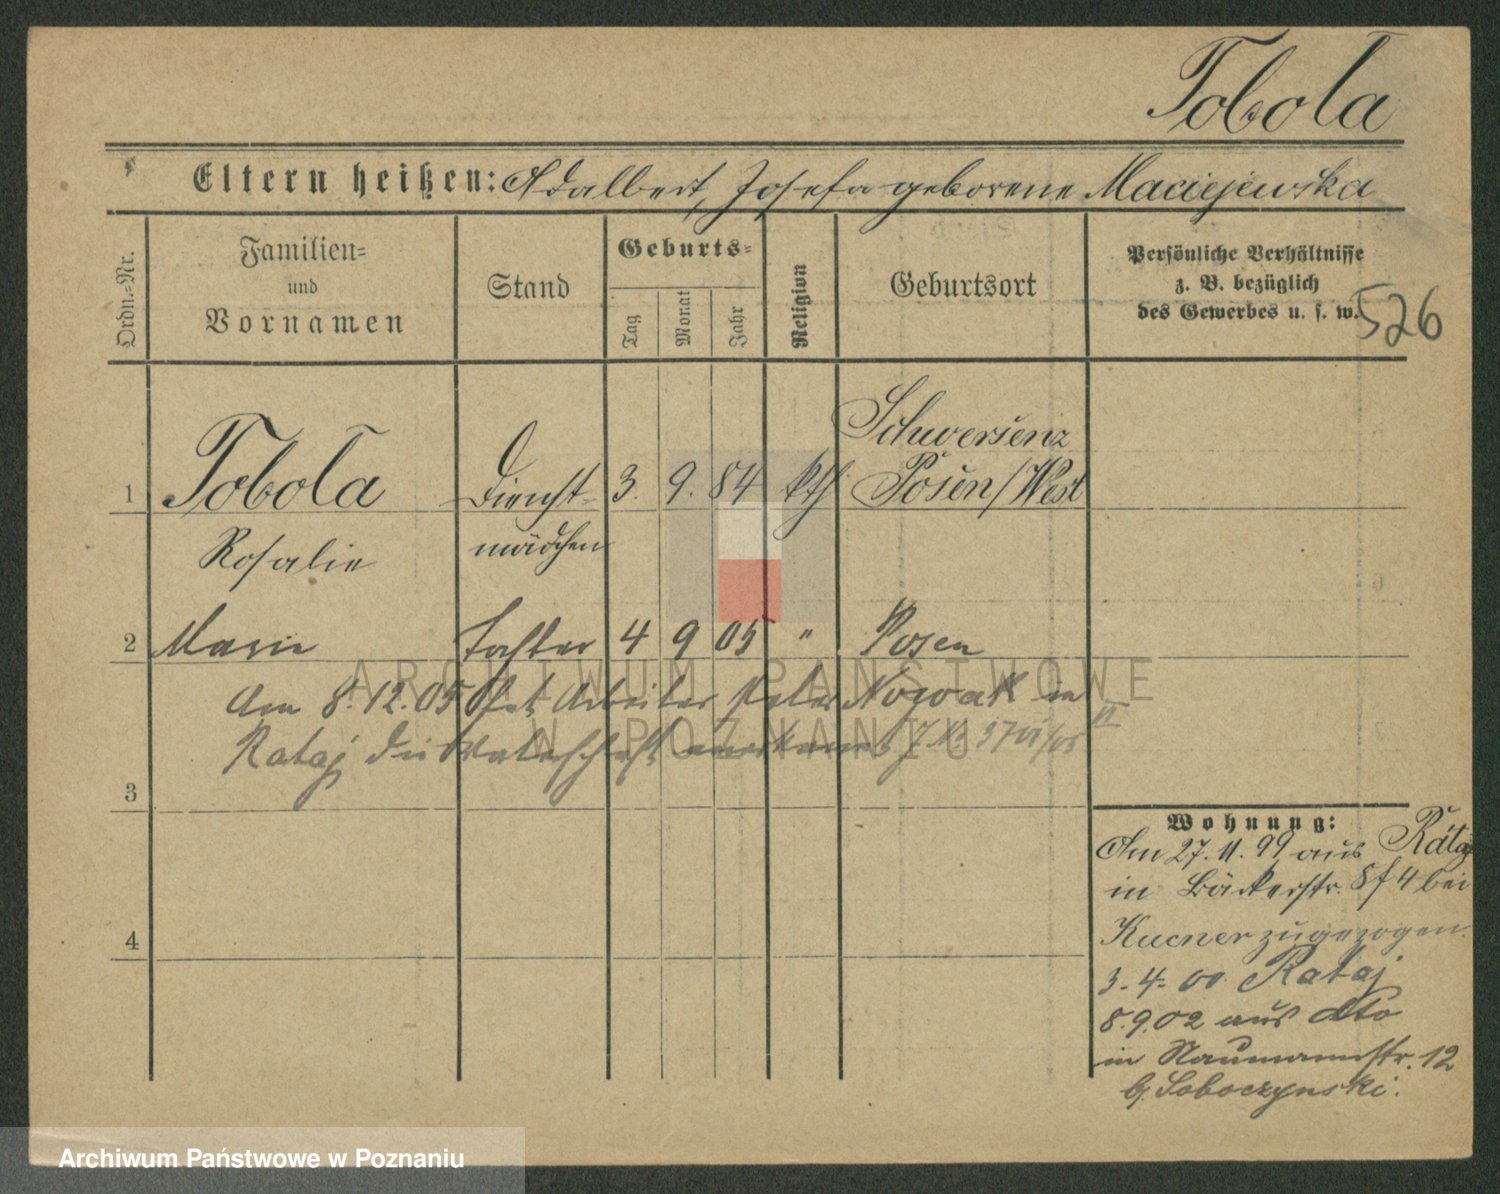 Tobola
Eltern heißen: Adalbert, Josefa geborene Maciejewska
Ordn.-Nr.
Familien-
und
Vornamen
Stand
Geburts-
Tag
Monat
Jahr
Religion
Geburtsort
Persönliche Verhältnisse
z. B. bezüglich
des Gewerbes u. s. w.
526
1 Tobola Dienst- 3. 9. 84 kth Schwersenz
Posen/West
Rosalie mädchen
2 Marie Tochter 4 9 05 " Posen
Am 8.12.05 hat Arbeiter Peter Nowak in
Rataj die Vaterschaft anerkannt
3
4
Wohnung:
Am 27.11.99 aus Rataj
in Bäckerstr. 8 f 4 bei
Kucner zugezogen.
3.4.00. Rataj
8.9.02 aus dto
in Naumannstr. 12
b. Soboczynski.
ARCHIWUM PAŃSTWOWE
W POZNANIU
Archiwum Państwowe w Poznaniu